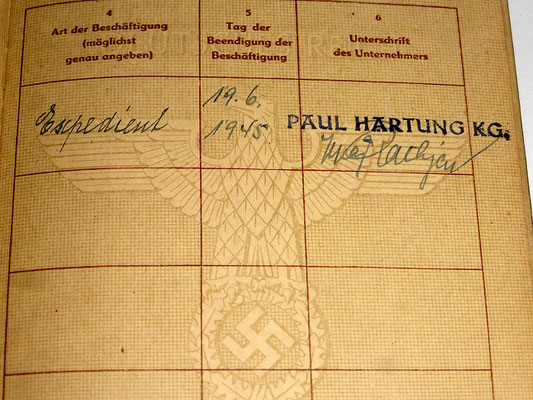 4
Art der Beschäftigung
(möglichst
genau angeben)
5
Tag der
Beendigung der
Beschäftigung
6
Unterschrift
des Unternehmers
Expedient
19.6.
1945
PAUL HARTUNG KG.